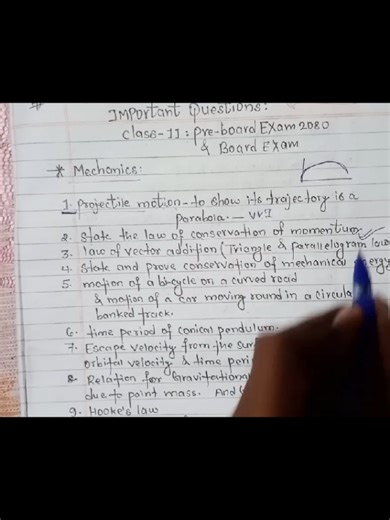 Important Questions:
Class-11: Pre-board Exam 2080
& Board Exam
* Mechanics:
1. Projectile motion - to show its trajectory is a
Parabola. — VVI
2. State the law of conservation of momentum
3. law of vector addition (Triangle & parallelogram law
4. State and prove conservation of mechanical energy
5. motion of a bicycle on a curved road
& motion of a car moving round in a circula
banked track.
6. time period of conical pendulum.
7. Escape velocity from the sur
orbital velocity & time peri
8. Relation for Gravitationa
due to point mass. And
9. Hooke's law